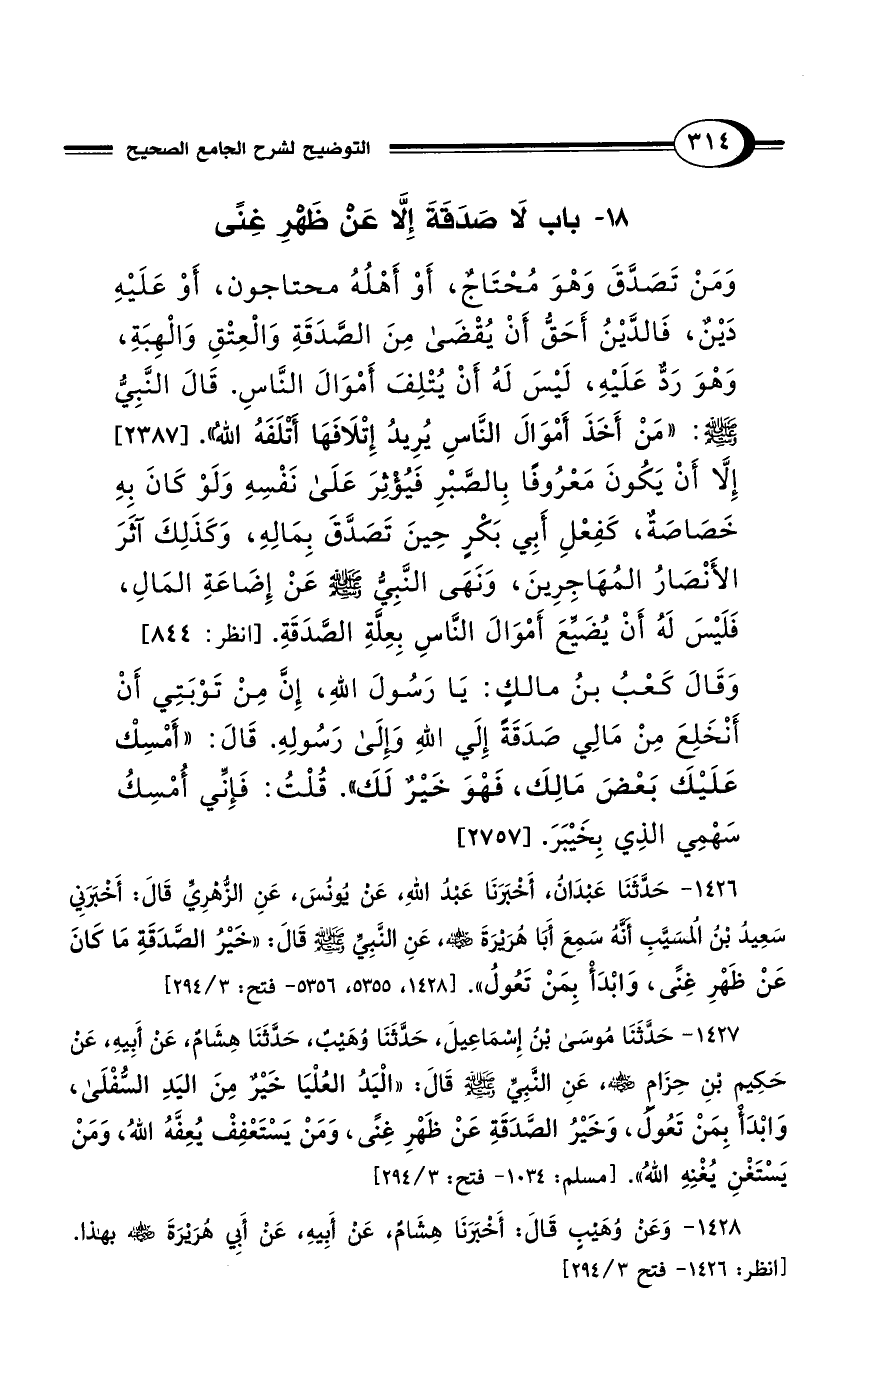 ٣١٤ التوضيح لشرح الجامع الصحيح
١٨- باب لَا صَدَقَةَ إِلَّا عَنْ ظَهْرِ غِنًى
وَمَنْ تَصَدَّقَ وَهْوَ مُحْتَاجٌ، أَوْ أَهْلُهُ محتاجون، أَوْ عَلَيْهِ
دَيْنٌ، فَالدَّيْنُ أَحَقُّ أَنْ يُقْضَىٰ مِنَ الصَّدَقَةِ وَالْعِتْقِ وَالْهِبَةِ،
وَهْوَ رَدٌّ عَلَيْهِ، لَيْسَ لَهُ أَنْ يُتْلِفَ أَمْوَالَ النَّاسِ. قَالَ النَّبِيُّ
ﷺ: «مَنْ أَخَذَ أَمْوَالَ النَّاسِ يُرِيدُ إِتْلَافَهَا أَتْلَفَهُ اللهُ». [٢٣٨٧]
إِلَّا أَنْ يَكُونَ مَعْرُوفًا بِالصَّبْرِ فَيُؤْثِرَ عَلَىٰ نَفْسِهِ وَلَوْ كَانَ بِهِ
خَصَاصَةٌ، كَفِعْلِ أَبِي بَكْرٍ حِينَ تَصَدَّقَ بِمَالِهِ، وَكَذَلِكَ آثَرَ
الأَنْصَارُ المُهَاجِرِينَ، وَنَهَى النَّبِيُّ ﷺ عَنْ إِضَاعَةِ المَالِ،
فَلَيْسَ لَهُ أَنْ يُضَيِّعَ أَمْوَالَ النَّاسِ بِعِلَّةِ الصَّدَقَةِ. [انظر: ٨٤٤]
وَقَالَ كَعْبُ بنُ مالكٍ: يَا رَسُولَ اللهِ، إِنَّ مِنْ تَوْبَتِي أَنْ
أَنْخَلِعَ مِنْ مَالِي صَدَقَةً إِلَي اللهِ وَإِلَىٰ رَسُولِهِ. قَالَ: «أَمْسِكْ
عَلَيْكَ بَعْضَ مَالِكَ، فَهْوَ خَيْرٌ لَكَ». قُلْتُ: فَإِنِّي أُمْسِكُ
سَهْمِي الذِي بِخَيْبَرَ. [٢٧٥٧]
١٤٢٦- حَدَّثَنَا عَبْدَانُ، أَخْبَرَنَا عَبْدُ اللهِ، عَنْ يُونُسَ، عَنِ الزُّهْرِيِّ قَالَ: أَخْبَرَنِي
سَعِيدُ بْنُ الُمسَيَّبِ أَنَّهُ سَمِعَ أَبَا هُرَيْرَةَ ﵁، عَنِ النَّبِيِّ ﷺ قَالَ: «خَيْرُ الصَّدَقَةِ مَا كَانَ
عَنْ ظَهْرِ غِنًى، وَابْدَأْ بِمَنْ تَعُولُ». [١٤٢٨، ٥٣٥٥، ٥٣٥٦- فتح: ٢٩٤/٣]
١٤٢٧- حَدَّثَنَا مُوسَىٰ بْنُ إِسْمَاعِيلَ، حَدَّثَنَا وُهَيْبٌ، حَدَّثَنَا هِشَامٌ، عَنْ أَبِيهِ، عَنْ
حَكِيمِ بْنِ حِزَامٍ ﵁، عَنِ النَّبِيِّ ﷺ قَالَ: «الْيَدُ العُلْيَا خَيْرٌ مِنَ اليَدِ السُّفْلَىٰ،
وَابْدَأْ بِمَنْ تَعُولُ، وَخَيْرُ الصَّدَقَةِ عَنْ ظَهْرِ غِنًى، وَمَنْ يَسْتَعْفِفْ يُعِفَّهُ اللهُ، وَمَنْ
يَسْتَغْنِ يُغْنِهِ اللهُ». [مسلم: ١٠٣٤- فتح: ٢٩٤/٣]
١٤٢٨- وَعَنْ وُهَيْبٍ قَالَ: أَخْبَرَنَا هِشَامٌ، عَنْ أَبِيهِ، عَنْ أَبِي هُرَيْرَةَ ﵁ بهذا.
[انظر: ١٤٢٦- فتح ٢٩٤/٣]